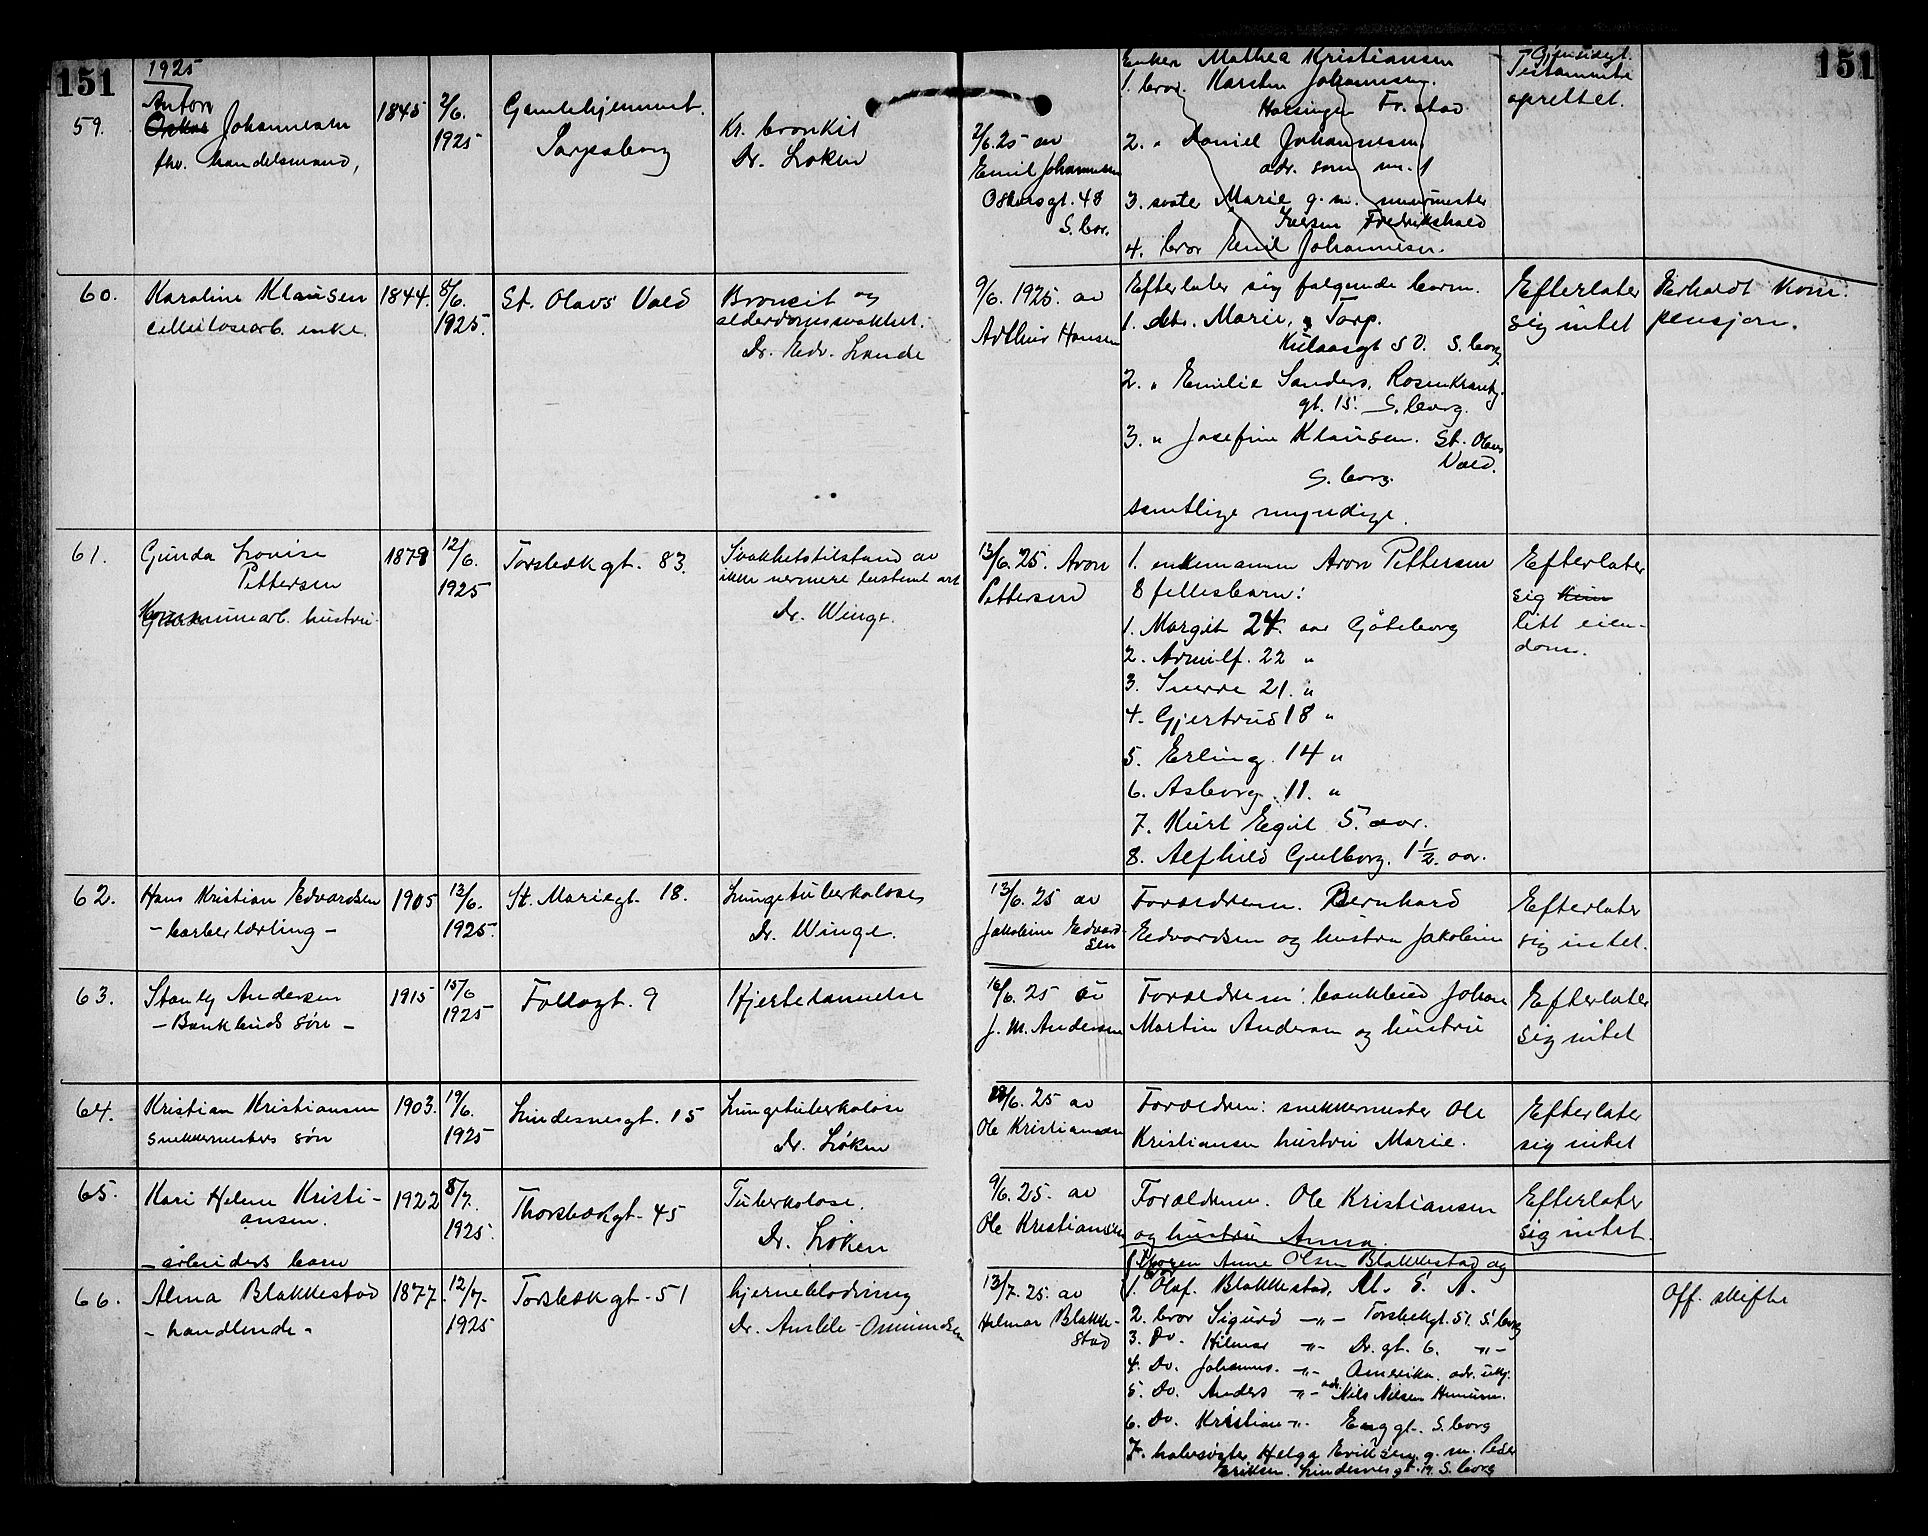 151
1925
59.
Anton
Oskar Johannesen
fhv. handelsmand,
1845
2/6.
1925
Gamlehjemmet.
Sarpsborg
Kr. bronkit
Dr. Løken
60.
Karoline Klausen
cellulosearb. enke.
1844.
8/6.
1925.
St. Olavs Vold
Bronkit og
alderdomssvakhet.
Dr. Edv. Lande
61.
Gunda Lovise
Pettersen
Kommunearb. hustru.
1879
12/6.
1925
Torsbækgt. 83.
Svakhetstilstand av
ikke nermere bestemt art
Dr. Winge.
62.
Hans Kristian Edvardsen
- barberlærling -
1905
13/6.
1925.
St. Mariegt. 18.
Lungetuberkolose
Dr. Winge.
63.
Stanley Andersen
- Bankbuds søn -
1915
15/6
1925
Follogt. 9
Hjertelammelse
64.
Kristian Kristiansen
snekkermesters søn
1903.
19/6.
1925
Lindesnesgt. 15
Lungetuberkolose
Dr. Løken
65.
Kari Helene Kristi-
ansen.
- arbeiders barn
1922
8/7.
1925.
Thorsbækgt. 45
Tuberkolose.
Dr. Løken
66.
Alma Blakkestad
- handlende -
1877.
12/7.
1925
Torsbækgt. 51
hjerneblødning
Dr. Omundsen
151
2/6.25 av
Emil Johannesen
Oskarsgt. 48
S.bor.
Enken Mathea Kristiansen
1. bror Karsten Johannesen.
Fr.stad.
2. " Daniel Johannesen
adr. som nr. 1
3. søster Marie g. m. murmester
Iversen Fredrikshald
4. bror Emil Johannesen.
Gjensidigt.
Testamente
oprettet.
9/6. 1925. av
Arthur Hansen
Efterlater sig følgende barn.
1. dtr. Marie, Torp.
S.borg
2. " Emilie Sanders, Rosenkrantz
gt. 15. S.borg.
3. " Josefine Klausen. St. Olavs
Vold.
S.borg.
samtlige myndige.
Efterlater
sig intet
Erholdt kom.
pensjon.
13/6.25. Aron
Pettersen
1. enkemannen Aron Pettersen
8 fellesbarn:
1. Margit 24. aar Göteborg
2. Arnulf. 22 "
3. Sverre 21. "
4. Gjertrud 18 "
5. Erling. 14 "
6. Asborg. 11. "
7. Kurt Egil 5. aar.
8. Alfhild Gulborg. 1 1/2. aar.
Efterlater
sig kun
litt eien-
dom.
13/6.25 av
Jakobine Edvard-
sen
Forældrene. Bernhard
Edvardsen og hustru Jakobine
Efterlater
sig intet.
16/6.25 av
J. M. Andersen
Forældrene: bankbud Johan
Martin Andersen og hustru
Efterlater
sig intet
/6.25 av
Ole Kristiansen
Forældrene: snekkermester Ole
Kristiansen hustru Marie.
Efterlater
sig intet
9/6.25. av
Ole Kristiansen
Forældrene. Ole Kristiansen
og hustru Anna.
Efterlater
sig intet.
13/7.25. av
Helmar Blakke-
stad
Anne Olsen Blakkestad og
1. Olaf. Blakkestad, U. S. A.
2. bror Sigurd -"- Torsbekgt. 51. S.borg
3. Do. Hilmar -"- Do. gt. 6. -"-
4. Do. Johannes. -"- Amerika. adr. ukj.
5. Do. Anders -"- adr. Nils Nilsen
6. Do. Kristian -"- Enggt. S.borg
7. halvsøster Helga Eriksen g. m. Peder
Eriksen. Lindesnesgt. S.borg
Off. skifte